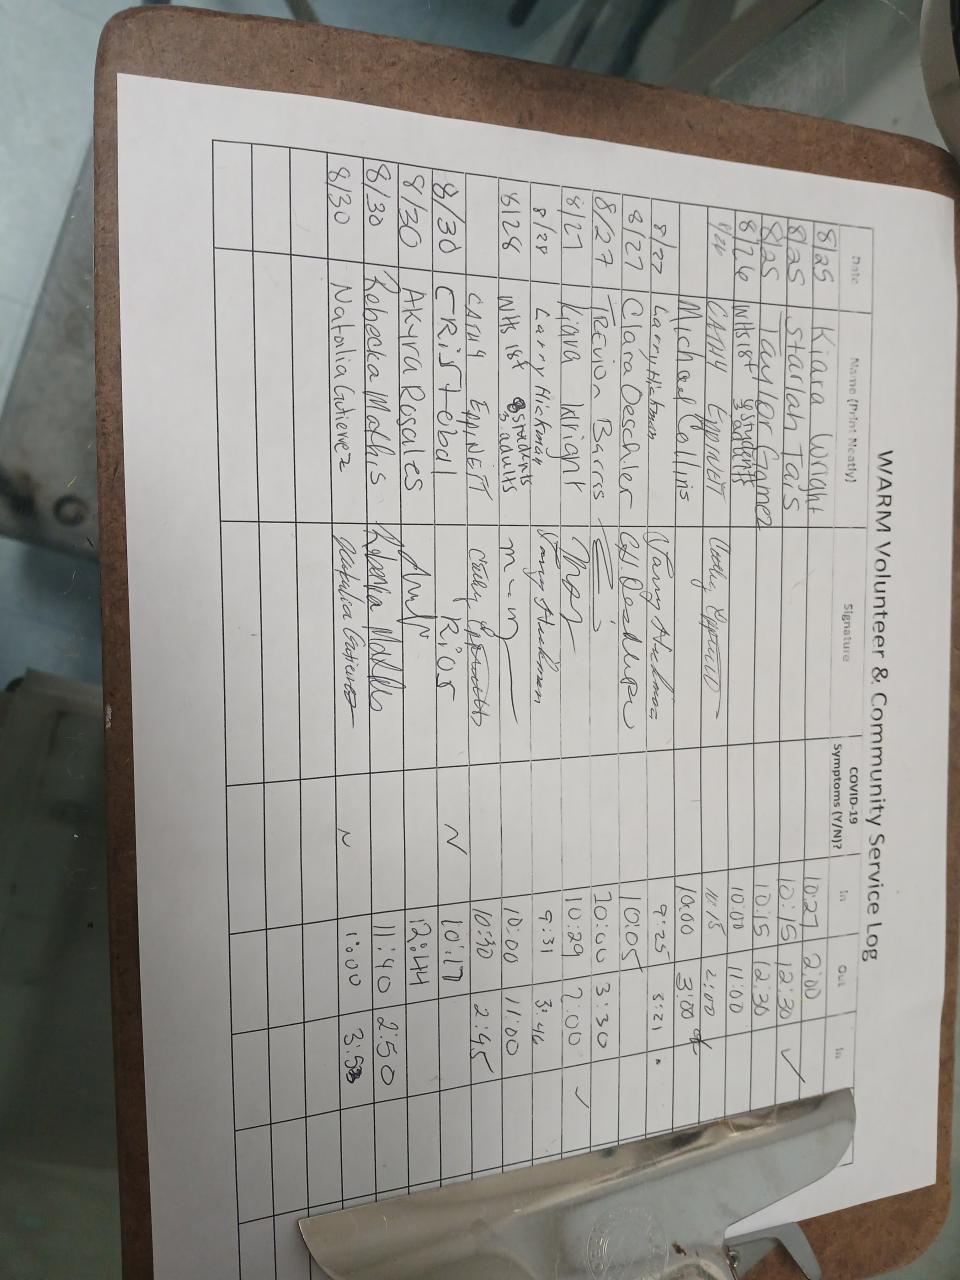 WARM Volunteer & Community Service Log
Date Name (Print Neatly) Signature COVID-19 Symptoms (Y/N)? In Out In
8/25 Kiara Wright 10:27 2:00
8/25 Starlah Tais 10:15 12:30 ✓
8/25 Taylor Gamez 10:15 12:30
8/26 NHS 1st students 10:00 11:00
8/26 CATHY EPPINETT 10:15 2:00
Michael Collins 10:00 3:00
8/27 Larry Hickman 9:25 3:21
8/27 Clara Oeschler 10:05
8/27 Trevion Barras 10:00 3:30
8/27 Kiara Wright 10:29 2:00 ✓
8/28 Larry Hickman 9:31 3:46
8/28 NHS 1st 8 students 3 adults 10:00 11:00
CATHY EPPINETT 10:30 2:45
8/30 CRisteibal Rios N 10:17
8/30 Akyra Rosales 12:44
8/30 Rebecka Mathis Rebecka Mathis 11:40 2:50
8/30 Natallia Gutierrez N 1:00